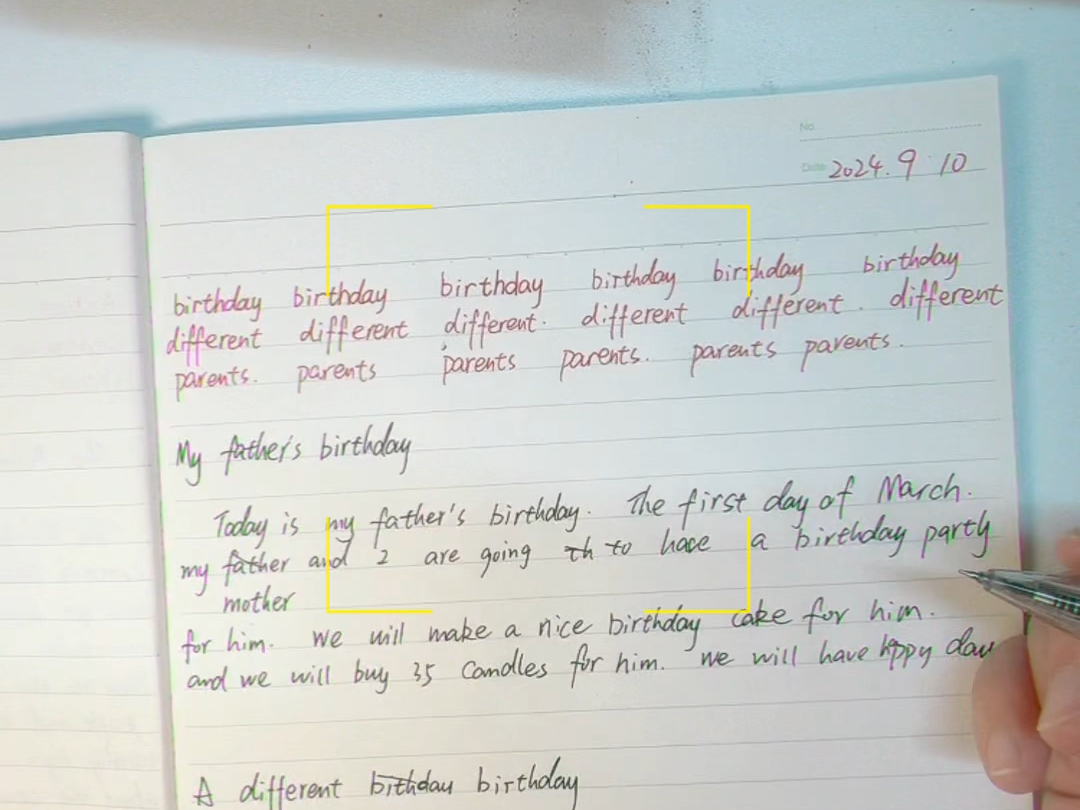 No.
Date 2024. 9 10
birthday birthday birthday birthday birthday birthday
different different different. different different. different
parents. parents parents parents. parents parents.
My father's birthday
Today is my father's birthday. The first day of March.
my father and 2 are going th to have a birthday party
mother
for him. we will make a nice birthday cake for him.
and we will buy 35 candles for him. we will have hppy day
A different bithday birthday